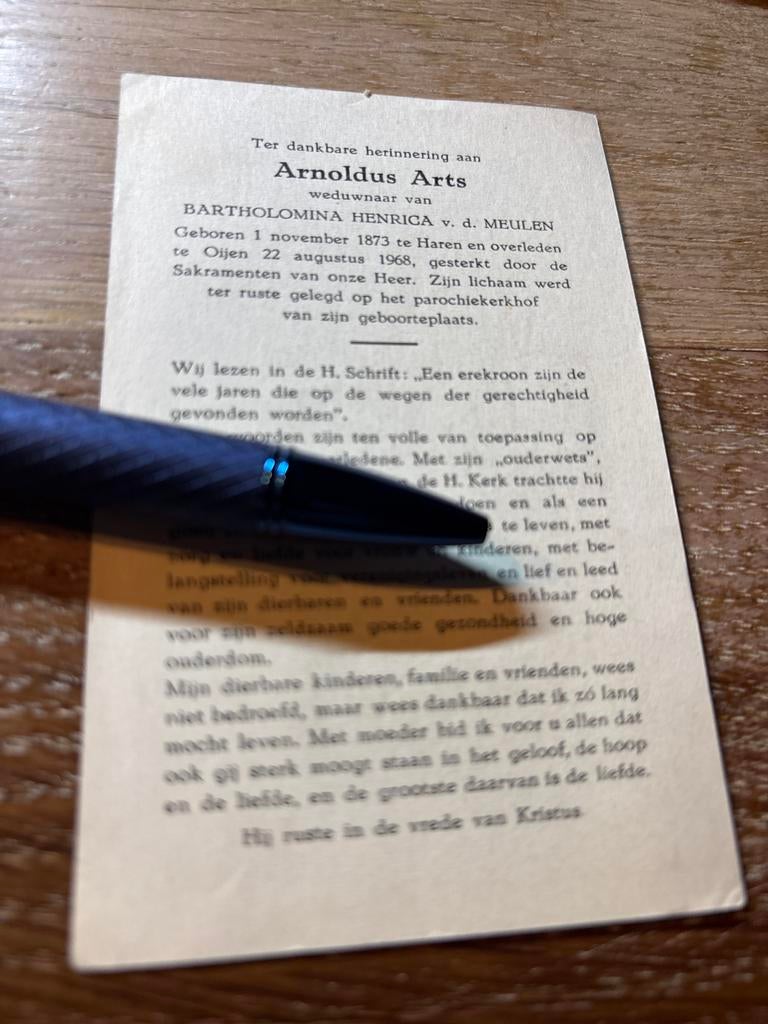 Ter dankbare herinnering aan
Arnoldus Arts
weduwnaar van
BARTHOLOMINA HENRICA v. d. MEULEN
Geboren 1 november 1873 te Haren en overleden
te Oijen 22 augustus 1968, gesterkt door de
Sakramenten van onze Heer. Zijn lichaam werd
ter ruste gelegd op het parochiekerkhof
van zijn geboorteplaats.
Wij lezen in de H. Schrift: „Een erekroon zijn de
vele jaren die op de wegen der gerechtigheid
gevonden worden”.
zijn ten volle van toepassing op
Met zijn „ouderwets”,
de H. Kerk trachtte hij
en als een
te leven, met
kinderen, met be-
langstelling voor en lief en leed
van zijn dierbaren en vrienden. Dankbaar ook
voor zijn zeldzaam goede gezondheid en hoge
ouderdom.
Mijn dierbare kinderen, familie en vrienden, wees
niet bedroefd, maar wees dankbaar dat ik zó lang
mocht leven. Met moeder bid ik voor u allen dat
ook gij sterk moogt staan in het geloof, de hoop
en de liefde, en de grootste daarvan is de liefde.
Hij ruste in de vrede van Kristus